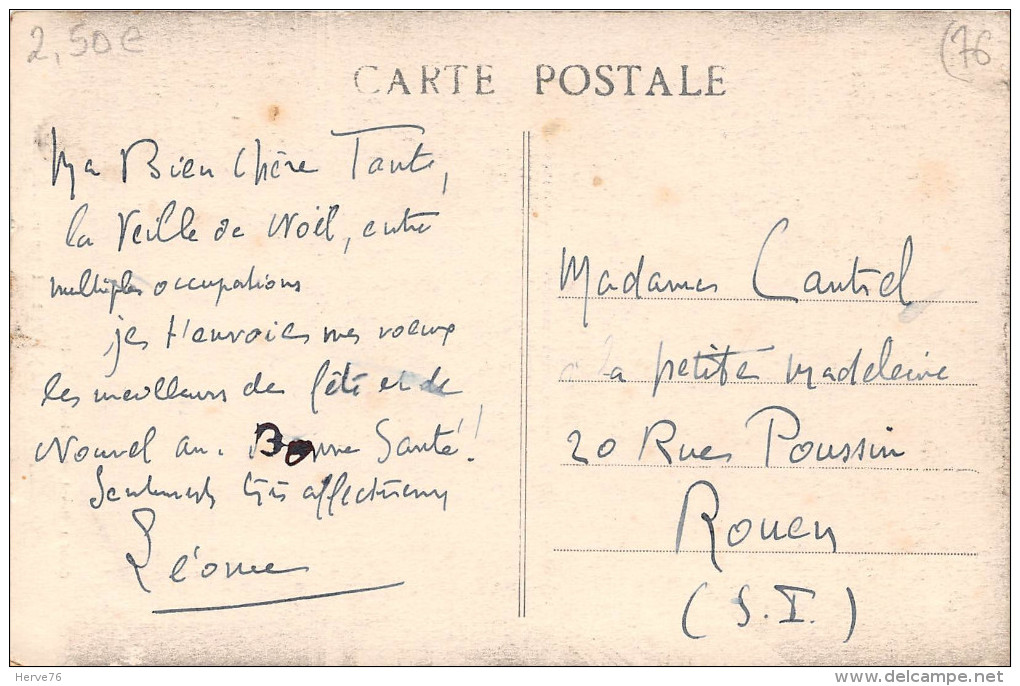 2,50e
(76
CARTE POSTALE
Ma Bien chère Tante,
la Veille de Noël, entre
multiples occupations
je t'envoie mes voeux
les meilleurs de fête et de
Nouvel an. Bonne Santé!
Sentiments très affectueux
Léone
Madame
la petite Madeleine
20 Rue Poussin
Rouen
(S.I.)
Herve76
www.delcampe.net